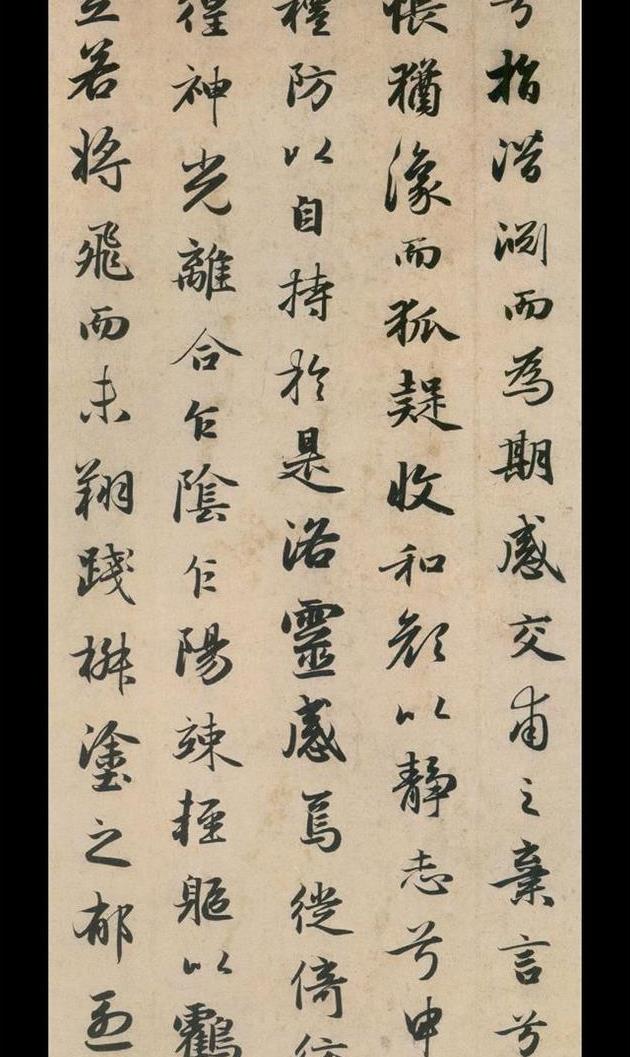 兮指潜渊而為期感交甫之棄言兮
悵猶㺏而狐疑收和顔以静志兮申
禮防以自持於是洛靈感焉徙倚彷
徨神光離合乍陰乍陽竦輕軀以鶴
立若將飛而未翔踐椒塗之郁烈